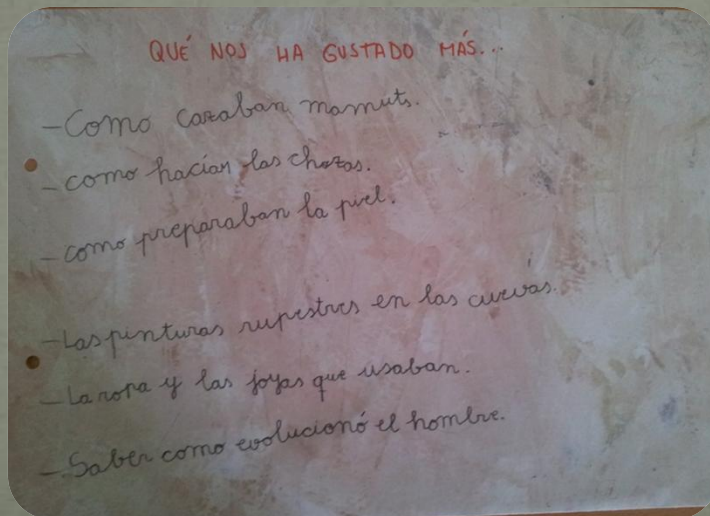 QUÉ NOS HA GUSTADO MÁS...
-Como cazaban mamuts.
-como hacían las chozas.
-como preparaban la piel.
-Las pinturas rupestres en las cuevas.
-La ropa y las joyas que usaban.
-Saber como evolucionó el hombre.